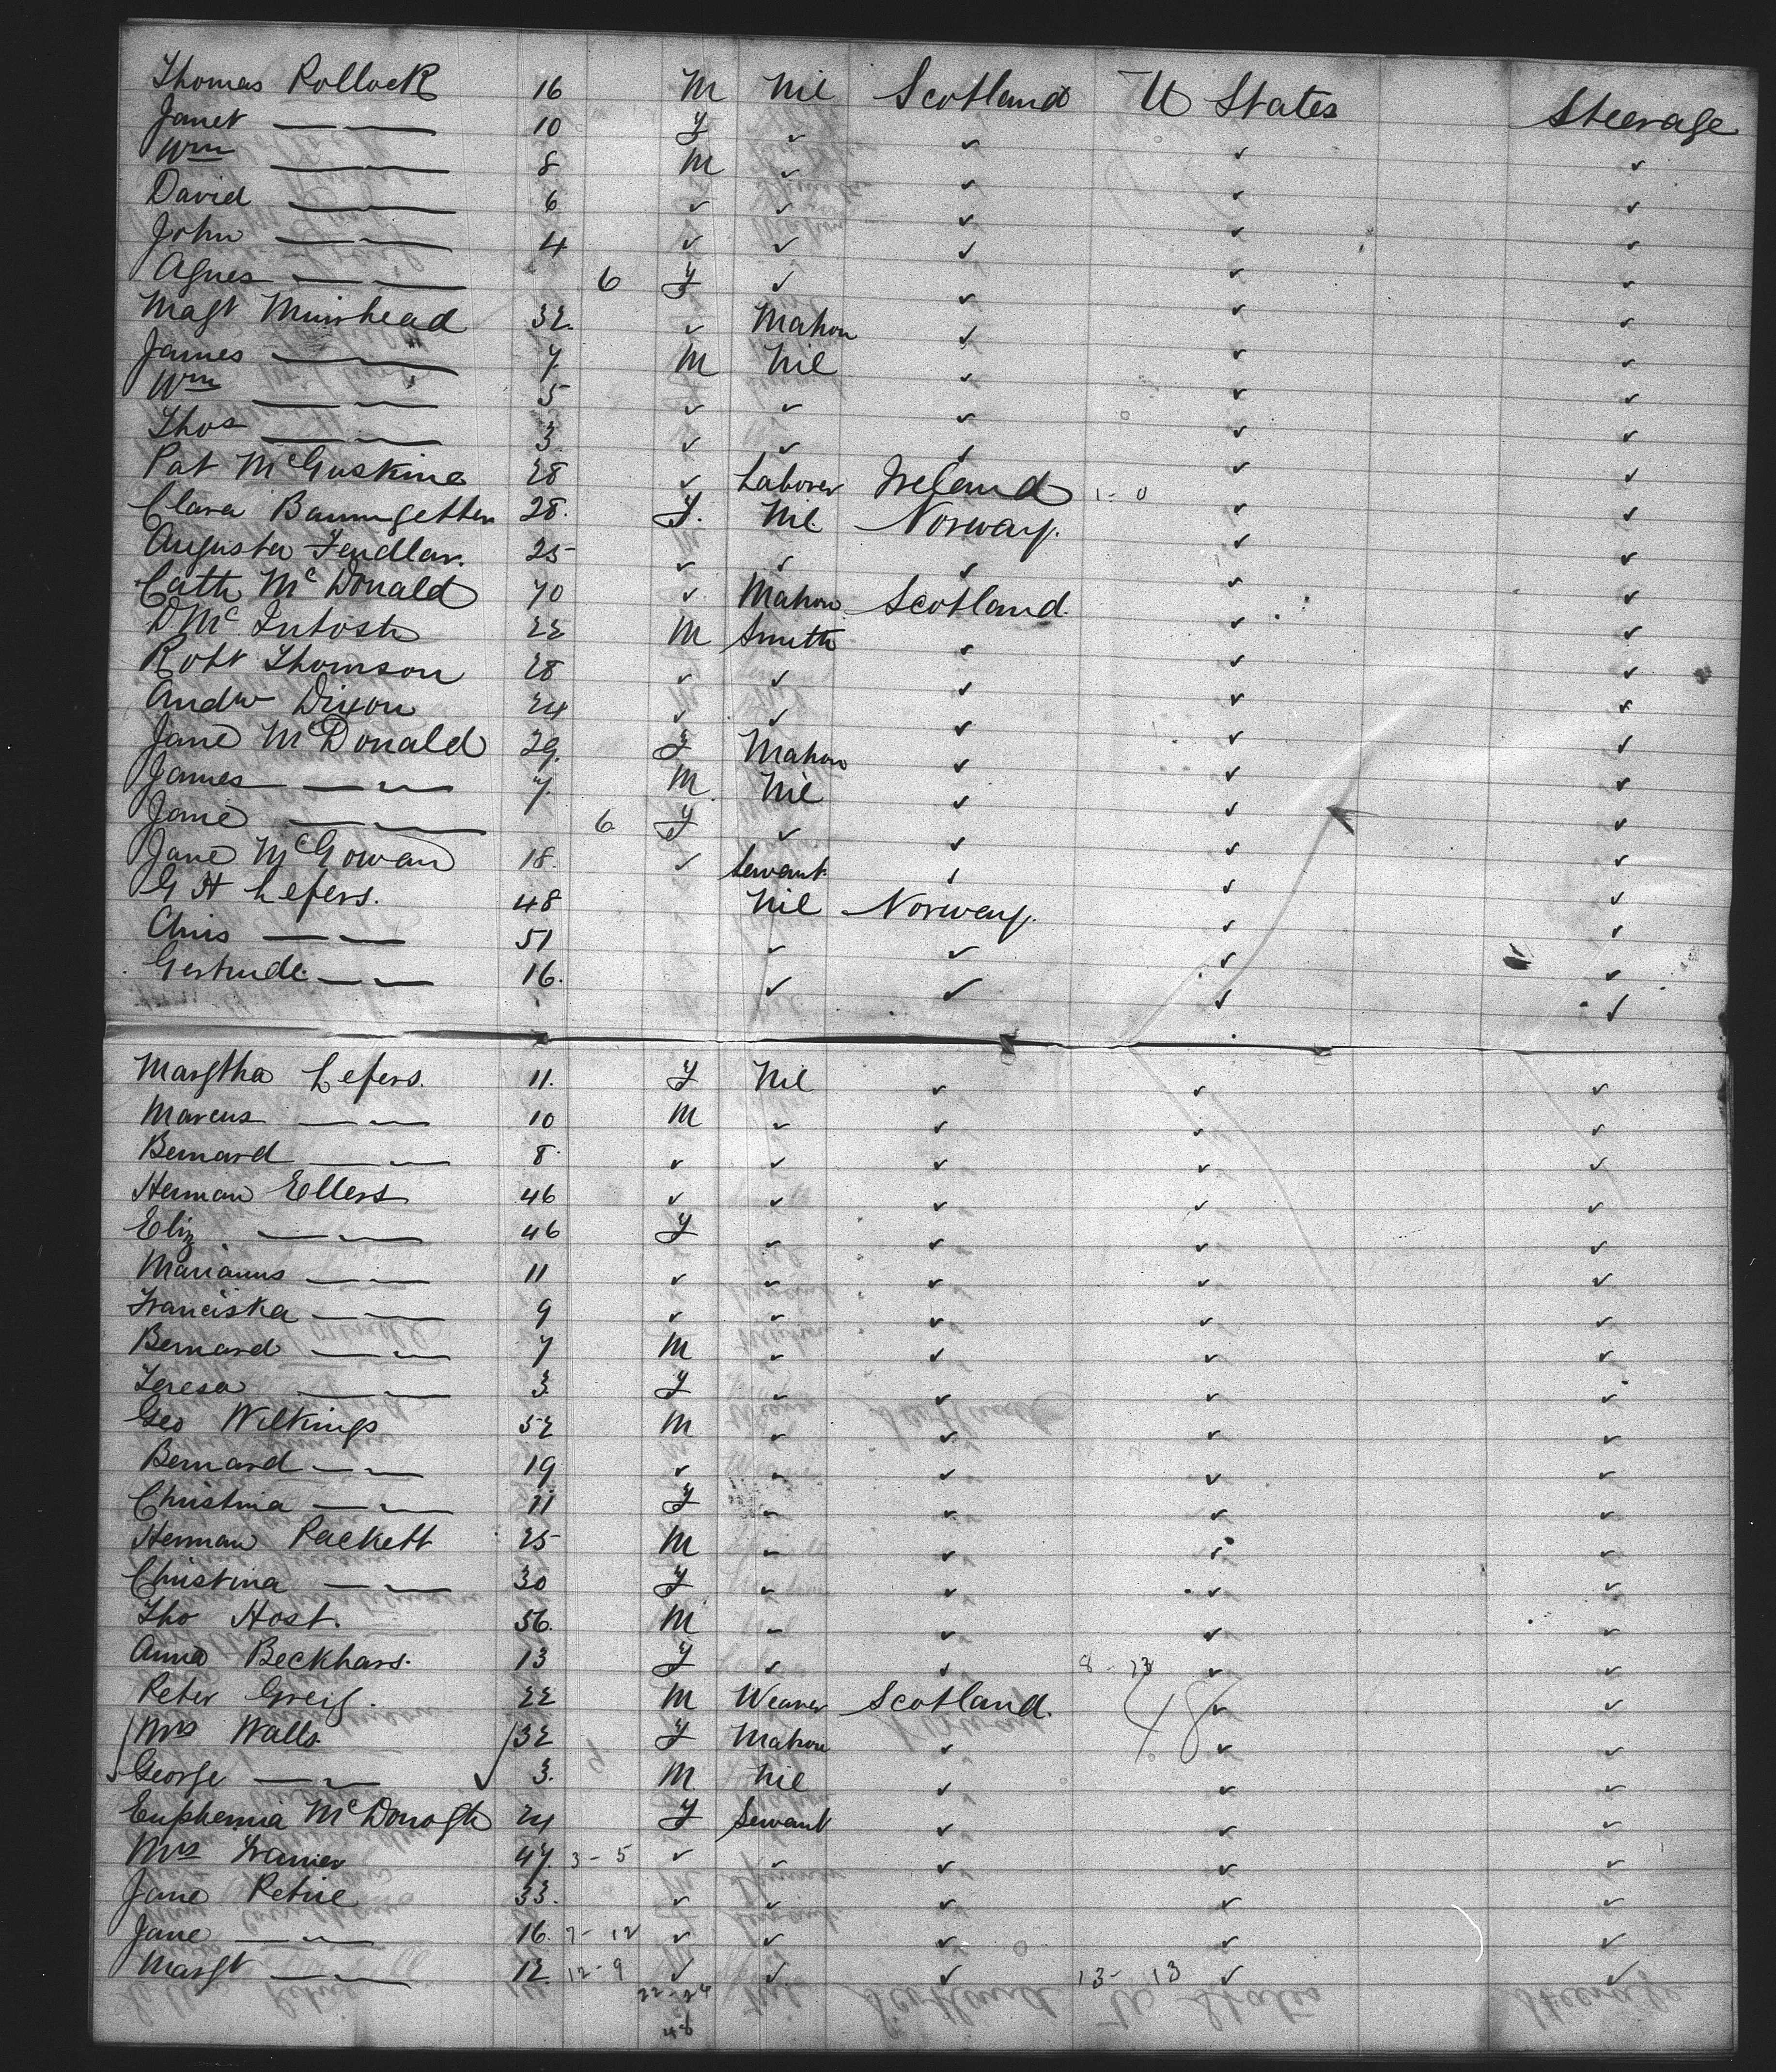 Thomas Pollock 16 M Nil Scotland U States Steerage
Janet —— 10 F ✓ ✓ ✓ ✓
Wm —— 8 M ✓ ✓ ✓ ✓
David —— 6 ✓ ✓ ✓ ✓ ✓
John —— 4 ✓ ✓ ✓ ✓ ✓
Agnes —— 6 F ✓ ✓ ✓ ✓
Magt Muirhead 32. ✓ Matron ✓ ✓ ✓
James —— 7 M Nil ✓ ✓ ✓
Wm —— 5 ✓ ✓ ✓ ✓ ✓
Thos —— 3 ✓ ✓ ✓ ✓ ✓
Pat McGuskine 28 ✓ Laborer Ireland 1-0 ✓ ✓
Clara Baumgetten 28. F. Nil Norway. ✓ ✓
Augusta Fendlar. 25 ✓ ✓ ✓ ✓ ✓
Cath McDonald 70 ✓ Matron Scotland. ✓ ✓
D McIntosh 22 M Smith ✓ ✓ ✓
Robt Thomson 28 ✓ ✓ ✓ ✓ ✓
Andw Dixon 24 ✓ ✓ ✓ ✓ ✓
Jane McDonald 29. F Matron ✓ ✓ ✓
James —— 7. M. Nil ✓ ✓ ✓
Jane —— 6 F ✓ ✓ ✓ ✓
Jane McGowan 18. ✓ Servant. ✓ ✓ ✓
G H Lefers. 48 Nil Norway. ✓ ✓
Chris —— 51 ✓ ✓ ✓ ✓
Gertrude —— 16. ✓ ✓ ✓ ✓
Margtha Lefers. 11. F Nil ✓ ✓ ✓
Marcus —— 10 M ✓ ✓ ✓ ✓
Bernard —— 8 ✓ ✓ ✓ ✓ ✓
Herman Ellers 46 ✓ ✓ ✓ ✓ ✓
Eliz —— 46 F ✓ ✓ ✓ ✓
Marianus —— 11 ✓ ✓ ✓ ✓ ✓
Franciska —— 9 ✓ ✓ ✓ ✓ ✓
Bernard —— 7 M ✓ ✓ ✓ ✓
Teresa —— 3 F ✓ ✓ ✓ ✓
Geo Wilkings 52 M ✓ ✓ ✓ ✓
Bernard —— 19 ✓ ✓ ✓ ✓ ✓
Christina —— 11 F ✓ ✓ ✓ ✓
Herman Packett 25 M ✓ ✓ ✓ ✓
Christina —— 30 F ✓ ✓ ✓ ✓
Tho Host. 56. M ✓ ✓ ✓ ✓
Anna Beckhars. 13 F ✓ ✓ 8-23 ✓ ✓
Peter Greig. 22 M Weaver Scotland. 48 ✓ ✓
Mrs Walls. 32 F Matron ✓ ✓ ✓
George —— 3. M Nil ✓ ✓ ✓
Euphemia McDonogh 24 F Servant ✓ ✓ ✓
Mrs 47. 3-5 ✓ ✓ ✓ ✓ ✓
Jane Petrie 33. ✓ ✓ ✓ ✓ ✓
Jane —— 16. 7-12 ✓ ✓ ✓ ✓ ✓
Margt —— 12 12-9 ✓ ✓ ✓ 13-13 ✓ ✓
22-26
48